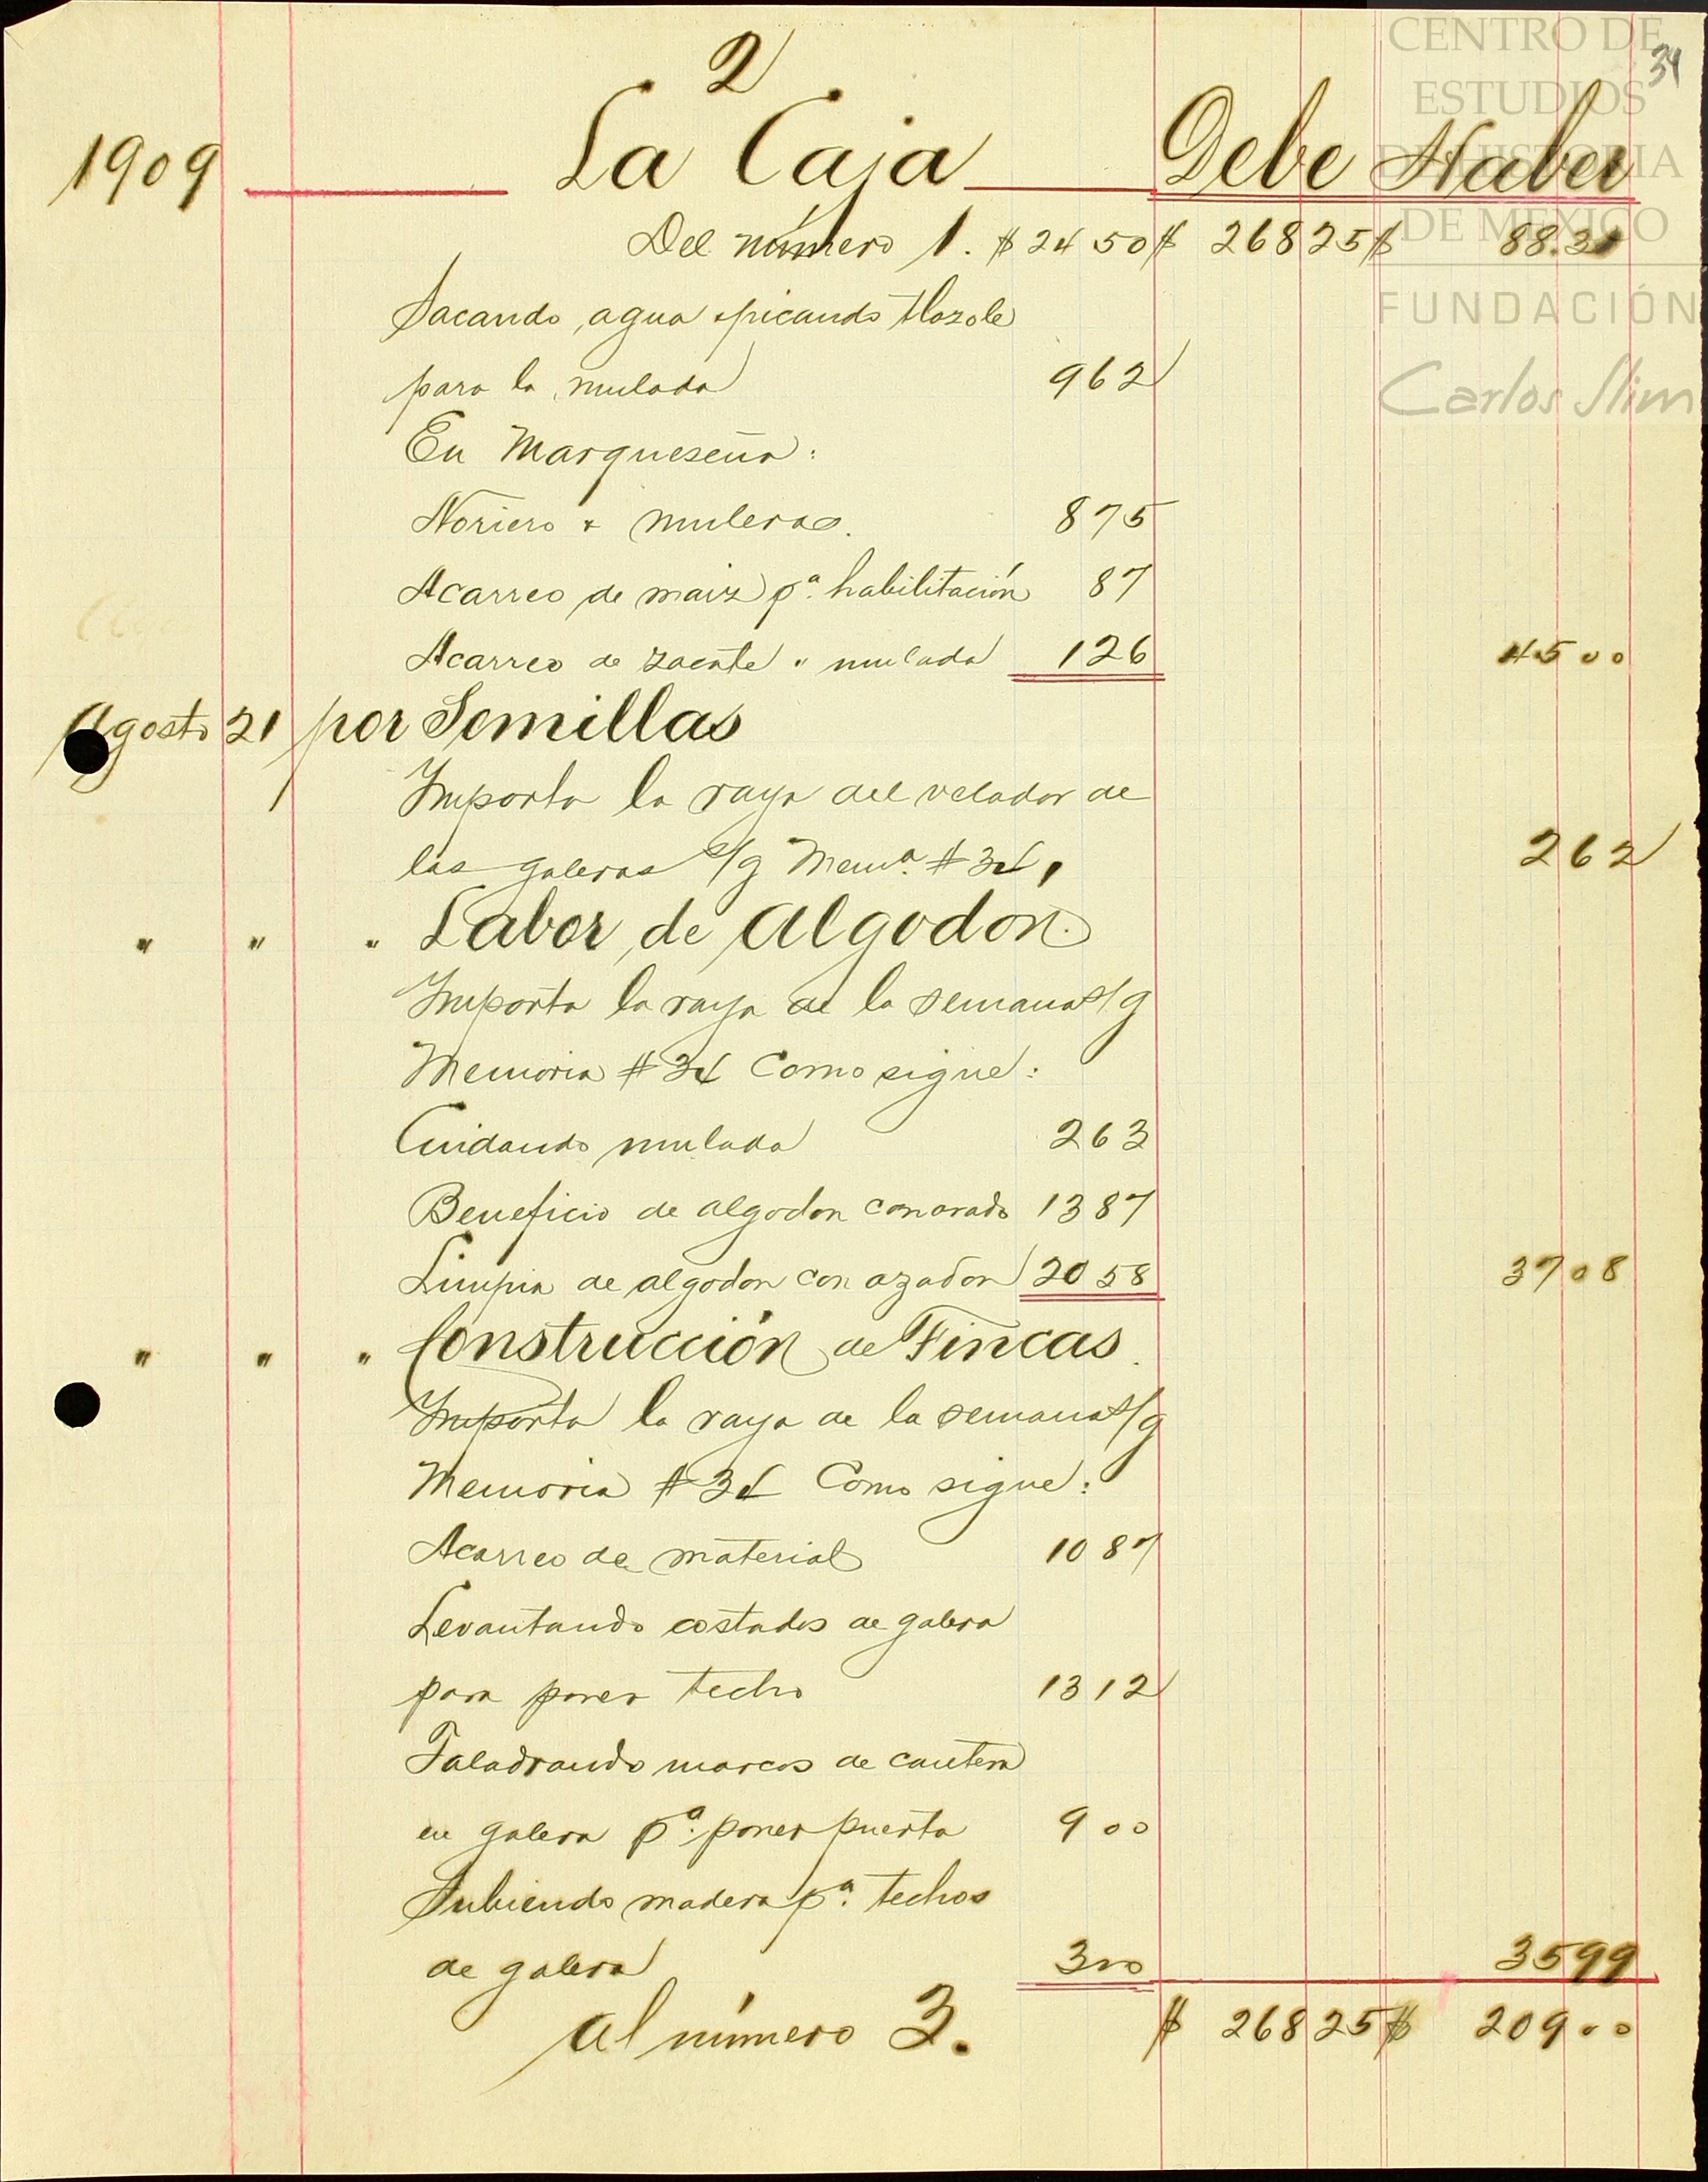 CENTRO DE
ESTUDIOS
DE HISTORIA
DE MEXICO
FUNDACIÓN
Carlos Slim
34
2
1909 La Caja Debe Haber
Del número 1. $ 24 50 $ 268 25 $ 88.31
Sacando agua y picando tlazole
para la mulada 9 62
En Marqueseña:
Noriero y muleros. 8 75
Acarreo de maiz pª. habilitación 87
Acarreo de zacate " mulada 1 26 45 00
Agosto 21 por Semillas
Importa la raya del velador de
las galeras s/g Memª. #34, 2 62
" " " Labor de Algodon.
Importa la raya de la semana s/g
Memoria #34 Como sigue:
Cuidando mulada 2 63
Beneficio de algodon con arado 13 87
Limpia de algodon con azadon 20 58 37 08
" " " Construcción de Fincas.
Importa la raya de la semana s/g
Memoria #34 Como sigue:
Acarreo de material 10 87
Levantando costados de galera
para poner techo 13 12
Taladrando marcos de cantera
en galera pª. poner puerta 9 00
Subiendo madera pª. techos
de galera 3 00 35 99
Al número 3. $ 268 25 $ 209 00